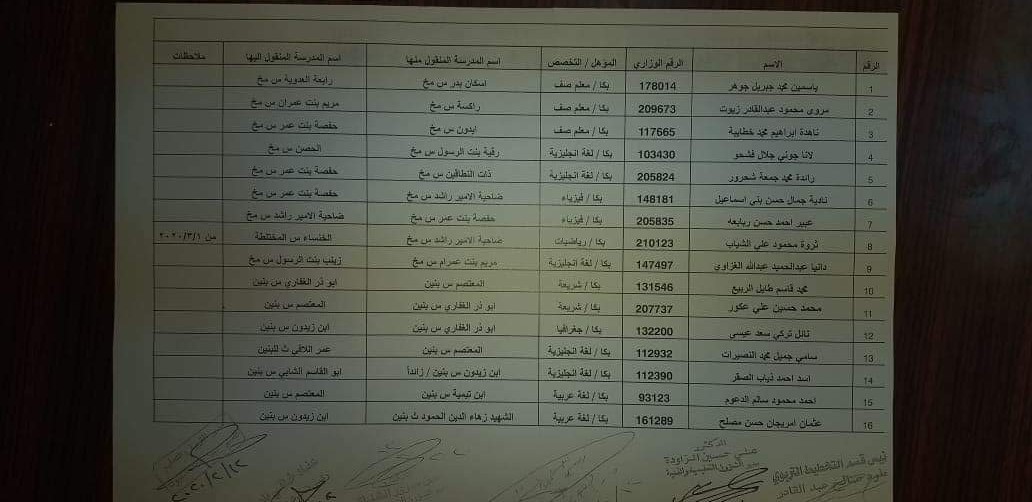 الرقم الاسم الرقم الوزاري المؤهل / التخصص اسم المدرسة المنقول منها اسم المدرسة المنقول اليها ملاحظات
1 ياسمين محمد جبريل جوهر 178014 بكا / معلم صف اسكان بدر س مخ رابعة العدوية س مخ
2 مروى محمود عبدالقادر زيوت 209673 بكا / معلم صف راكسة س مخ مريم بنت عمران س مخ
3 ناهدة ابراهيم محمد خطايبة 117665 بكا / معلم صف ايدون س مخ حفصة بنت عمر س مخ
4 لانا جوني جلال فشحو 103430 بكا / لغة انجليزية رقية بنت الرسول س مخ الحصن س مخ
5 رائدة محمد جمعة شحرور 205824 بكا / لغة انجليزية ذات النطاقين س مخ حفصة بنت عمر س مخ
6 نادية جمال حسن بني اسماعيل 148181 بكا / فيزياء ضاحية الامير راشد س مخ حفصة بنت عمر س مخ
7 عبير احمد حسن ربابعه 205835 بكا / فيزياء حفصة بنت عمر س مخ ضاحية الامير راشد س مخ
8 ثروة محمود علي الشياب 210123 بكا / رياضيات ضاحية الامير راشد س مخ الخنساء س المختلطة من ٢٠٢٠/٣/١
9 دانيا عبدالحميد عبدالله الغزاوي 147497 بكا / لغة انجليزية مريم بنت عمرام س مخ زينب بنت الرسول س مخ
10 محمد قاسم طايل الربيع 131546 بكا / شريعة المعتصم س بنين ابو ذر الغفاري س بنين
11 محمد حسين علي عكور 207737 بكا / شريعة ابو ذر الغفاري س بنين المعتصم س بنين
12 نائل تركي سعد عيسى 132200 بكا / جغرافيا ابو ذر الغفاري س بنين ابن زيدون س بنين
13 سامي جميل محمد النصيرات 112932 بكا / لغة انجليزية المعتصم س بنين عمر اللافي ث للبنين
14 اسد احمد ذياب الصقر 112390 بكا / لغة انجليزية ابن زيدون س بنين / زائداً ابو القاسم الشابي س بنين
15 احمد محمود سالم الدعوم 93123 بكا / لغة عربية ابن تيمية س بنين المعتصم س بنين
16 عثمان امريجان حسن مصلح 161289 بكا / لغة عربية الشهيد زهاء الدين الحمود ث بنين ابن زيدون س بنين
الدكتور
رئيس قسم التخطيط التربوي